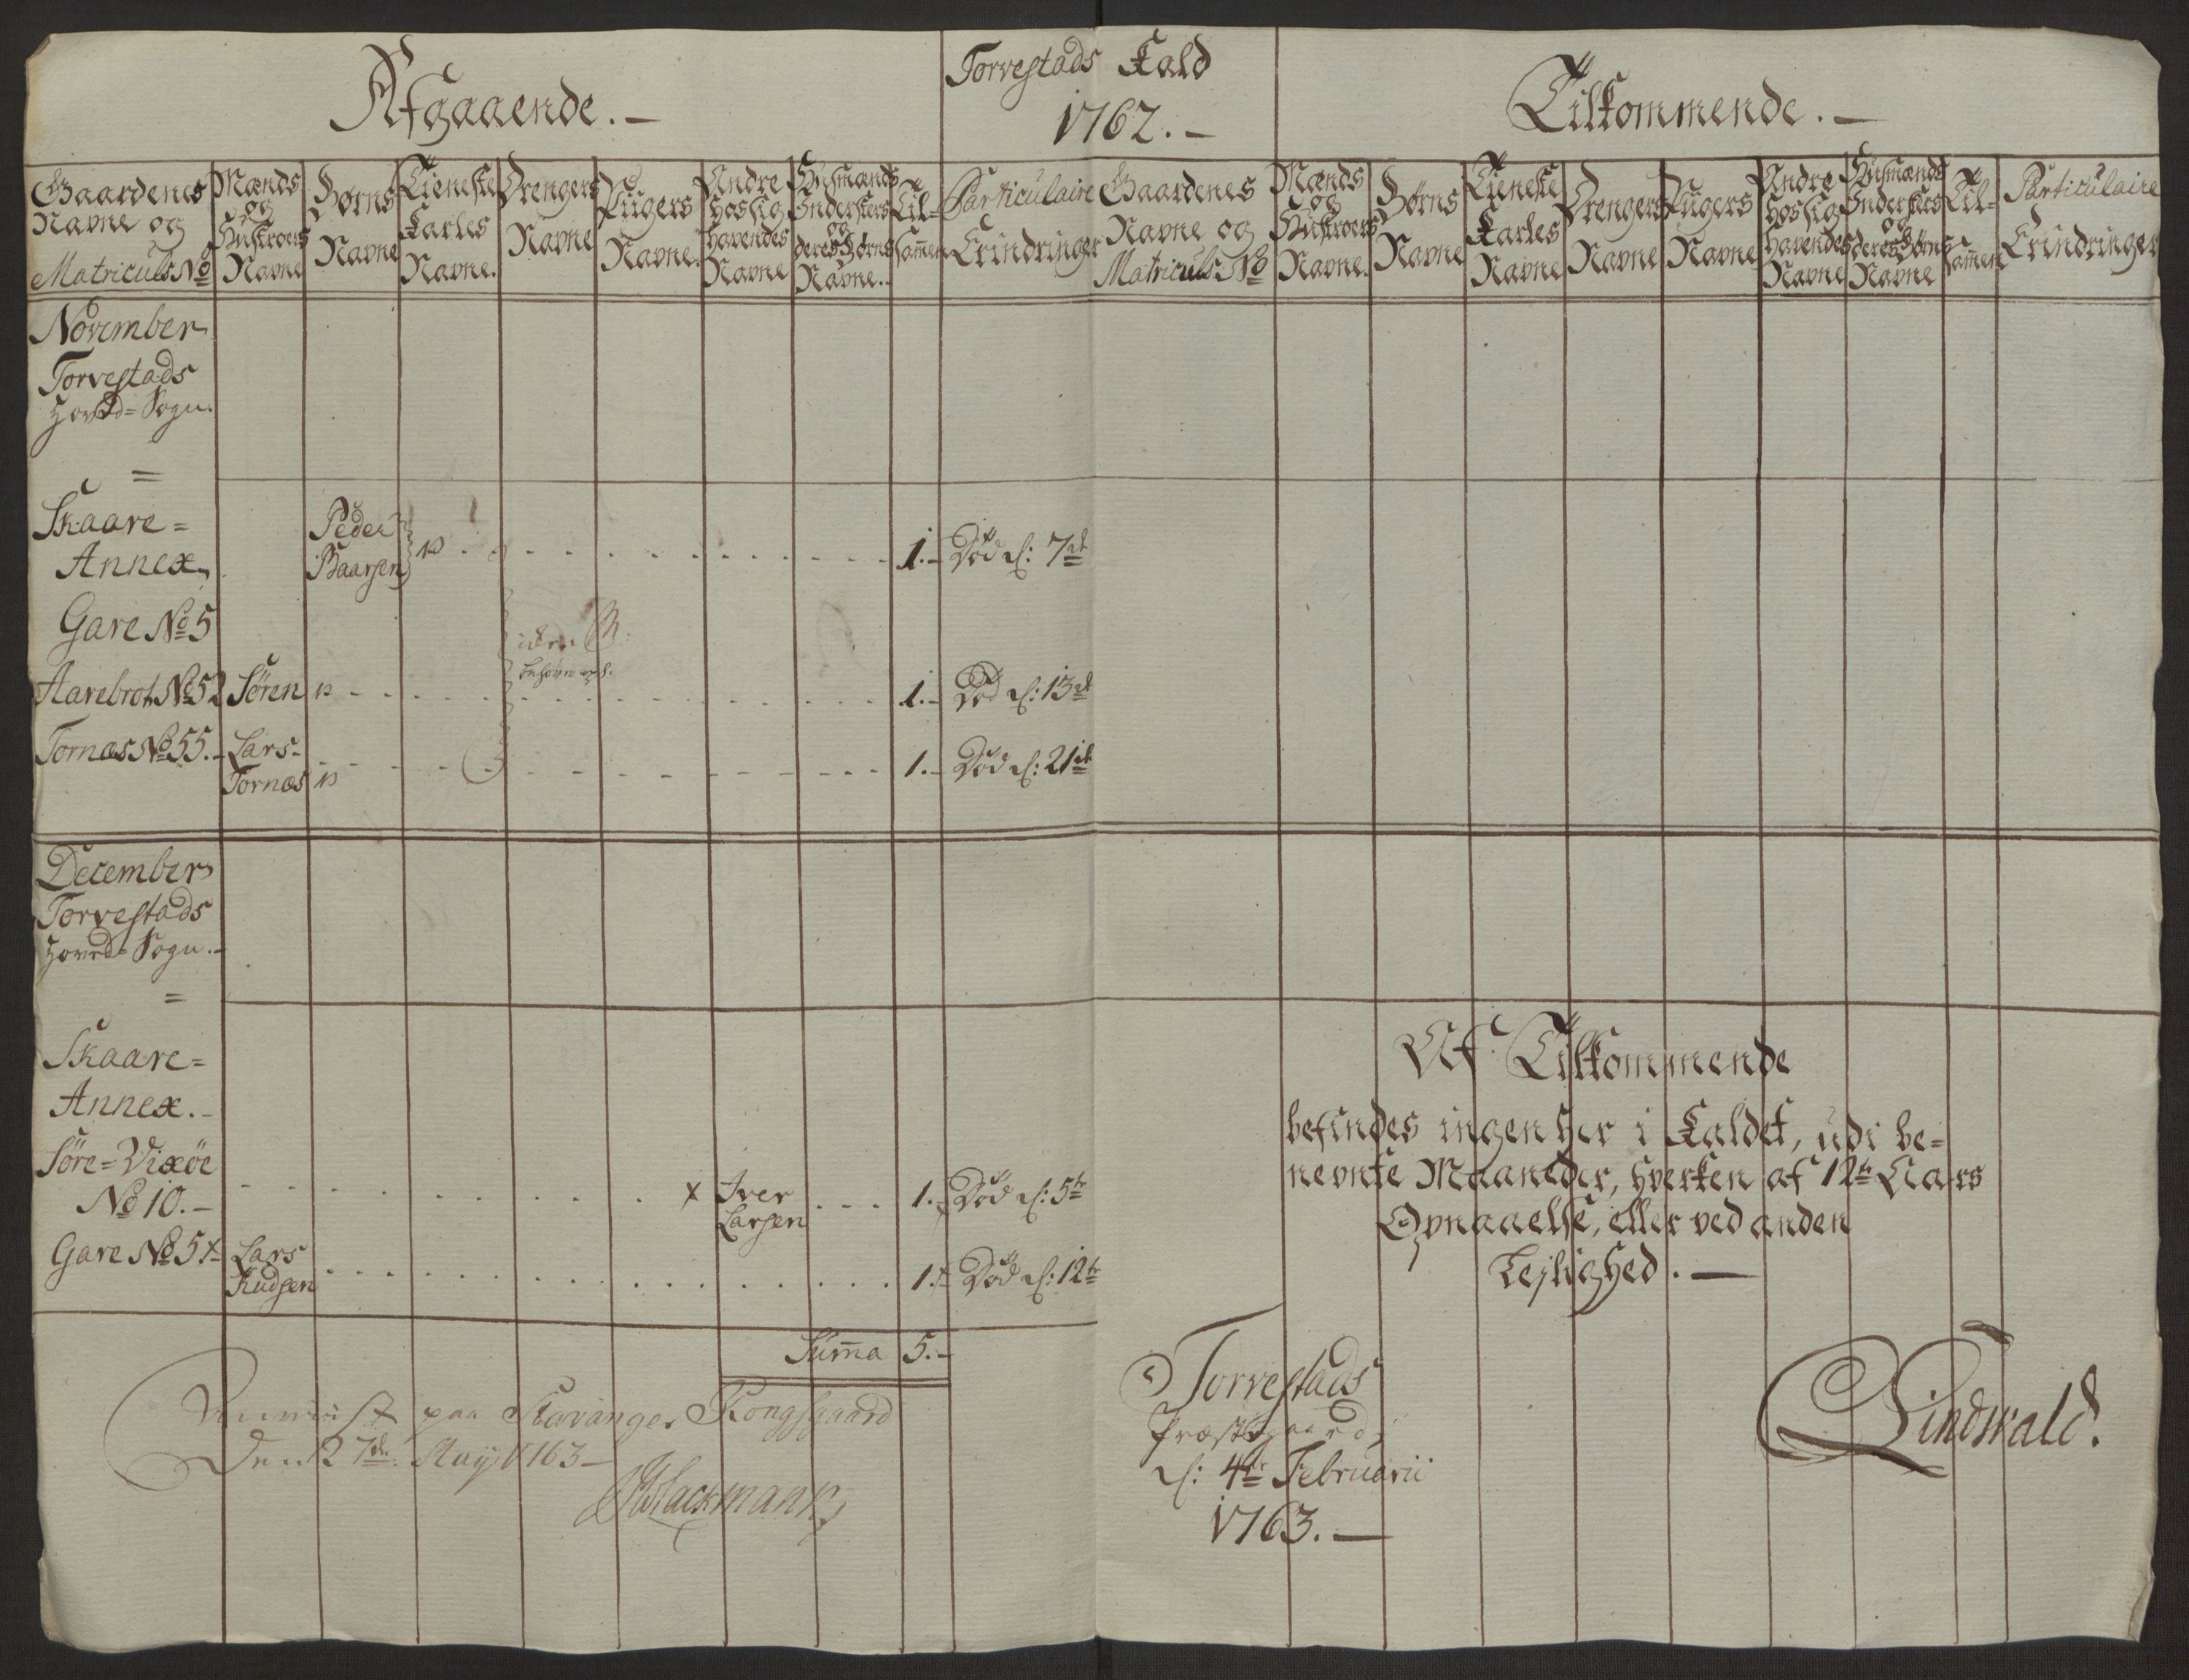 Torvestads Kald
1762.-
Afgaaende.-
Tilkommende.-
Gaardenes Navne og Matriculs No
Mænds og Hustroers Navne
Børns Navne
Tieneste Karles Navne.
Drengers Navne
Pigers Navne.
Andre hos sig havendes Navne
Husmænds Inderster og deres Børns Navne.
Til=sammen
Particulaire Erindringer
Gaardenes Navne og Matriculs No
Mænds og Hustroers Navne.
Børns Navne
Tieneste Karles Navne
Drengers Navne
Pigers Navne
Andre hos sig havendes Navne
Husmænds Inderster og deres Børns Navne
Til=sammen
Particulaire Erindringer
November
Torvestads
Hoved=Sogn.
=
Skaare=
Annex.
Peder
Baarsen
1.- Død d: 7de
Gare No 5
Aarebrot No 52 Sören 1.- Død d: 13de
Tornæs No 55.- Lars
Tornæs 1.- Død d: 21de
December
Torvestads
Hoved=Sogn.-
=
Skaare=
Annex.-
Söre=Vixöe
No 10.- x Iver
Larsen 1.- Død d: 5te
Gare No 5x Lars
Knudsen 1.- Død d: 12te
Summa 5.-
Af Tilkommende
befindes ingen her i Kaldet, udi be=
nevnte Maaneder, hverken af 12te Aars
Opnaaelse, eller ved anden
Lejlighed.-
Torvestads
Præstegaard,
d: 4de Februarii
1763.-
Lindwald.
paa Stavanger Kongsgaard
Den 27de. May 1763-